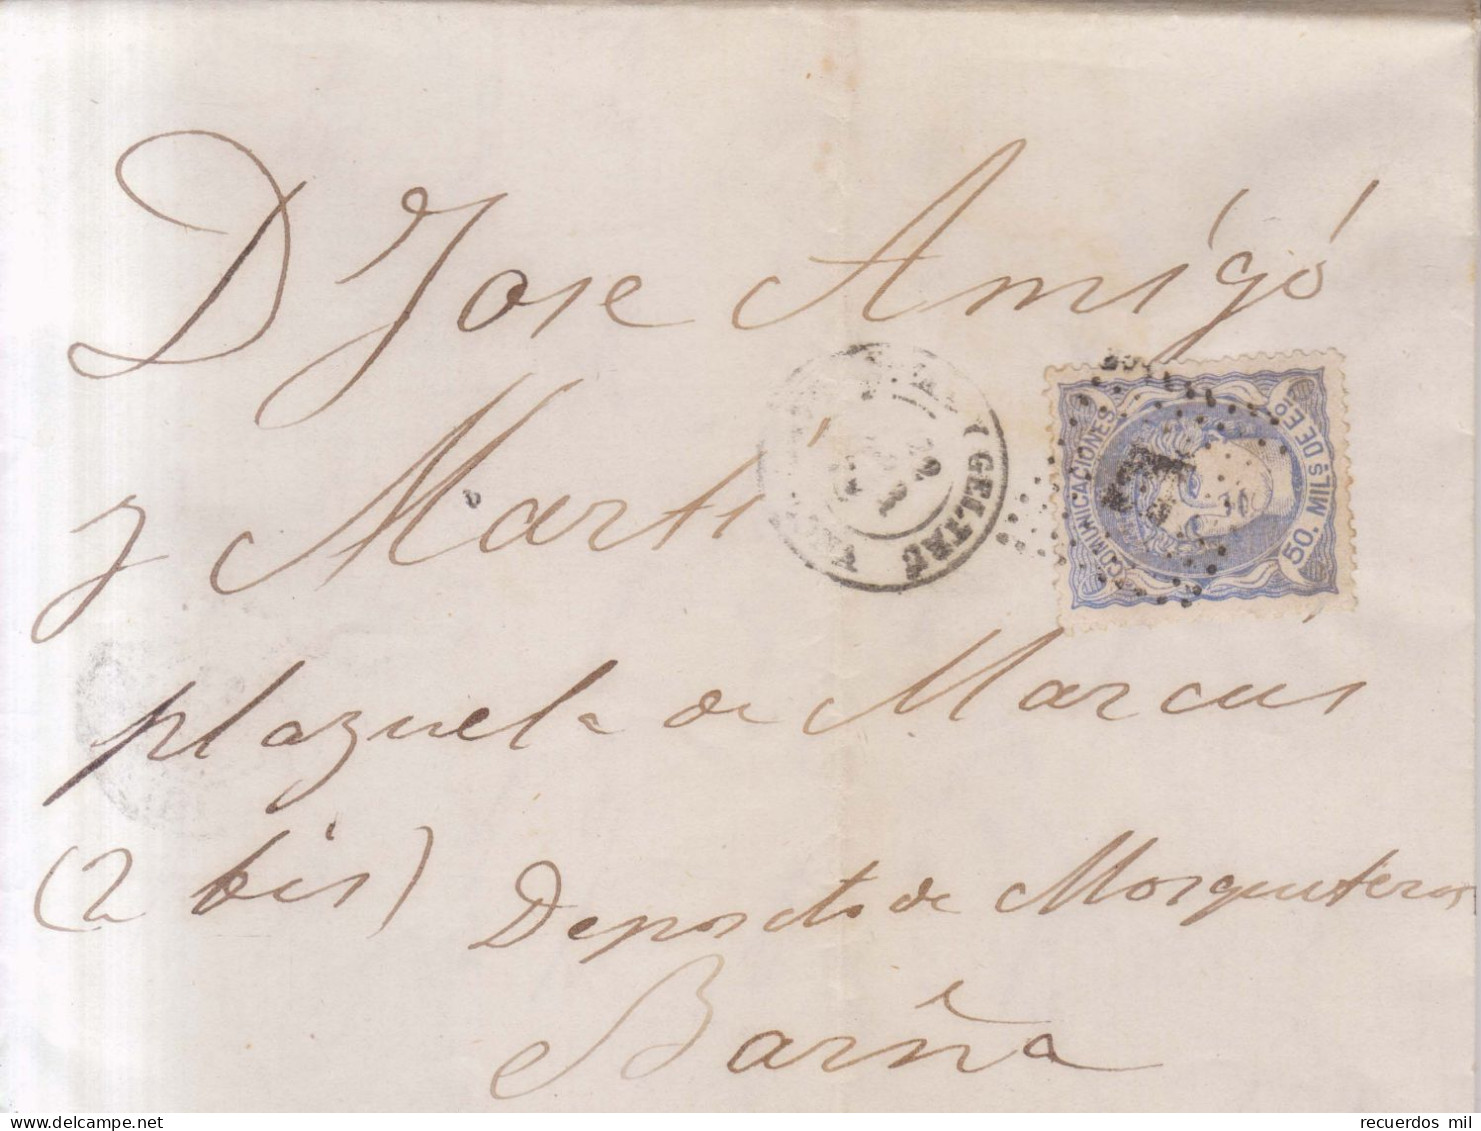 D Jose Amigó
y Martí
Y GELTRÚ
COMUNICACIONES
50. MILS DE Eº
plazuela de Marcus
(2 bis)
Deposito de Mosquiteros
Barña
www.delcampe.net
recuerdos mil